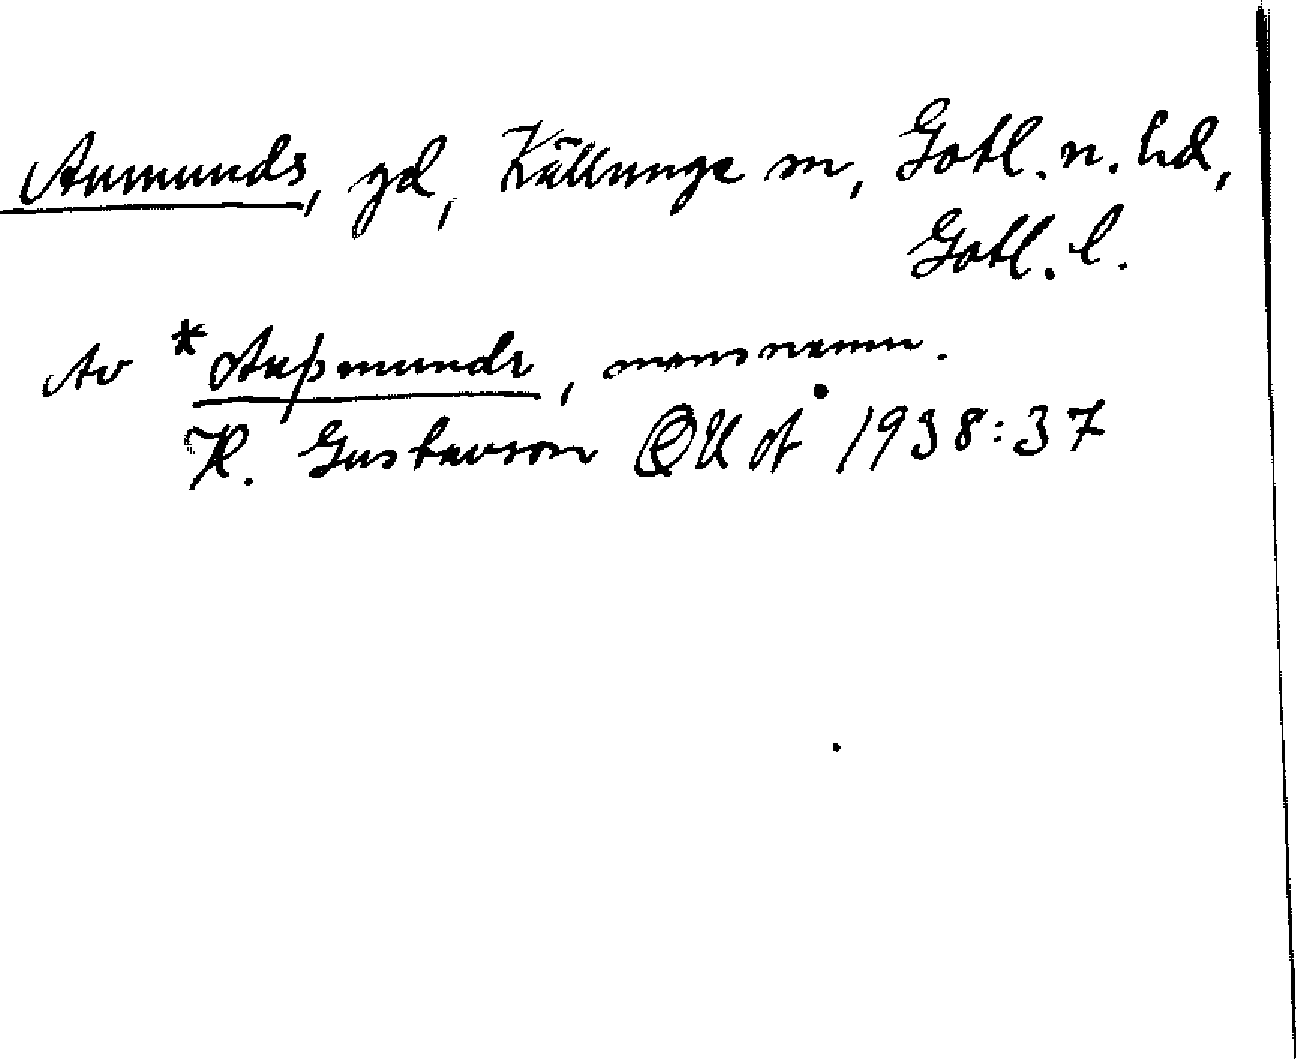 Aumunds, gd, Källunge sn, Gotl. n. hd,
Gotl. l.
Av *Auþmundr, mansnamn.
H. Gustavson OUÅ 1938:37